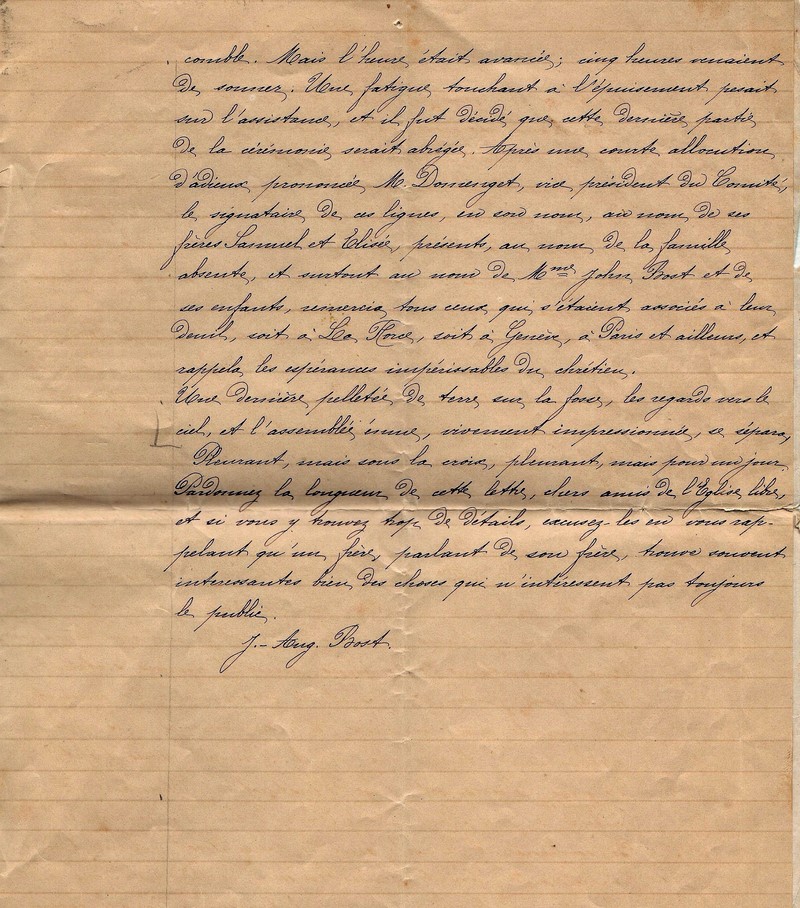 comble. Mais l'heure était avancée; cinq heures venaient
de sonner. Une fatigue touchant à l'épuisement pesait
sur l'assistance, et il fut décidé que cette dernière partie
de la cérémonie serait abrégée. Après une courte allocution
d'adieux prononcée M. Domenget, vice président du Comité,
le signataire de ces lignes, en son nom, au nom de ses
frères Samuel et Elisée, présents, au nom de la famille
absente, et surtout au nom de Mme John Bost et de
ses enfants, remercia tous ceux qui s'étaient associés à leur
deuil, soit à La Force, soit à Genève, à Paris et ailleurs, et
rappela les espérances impérissables du chrétien.
Une dernière pelletée de terre sur la fosse, les regards vers le
ciel, et l'assemblée émue, vivement impressionnée, se sépara,
Pleurant, mais sous la croix, pleurant, mais pour un jour
Pardonnez la longueur de cette lettre, chers amis de l'Eglise libre,
et si vous y trouvez trop de détails, excusez-les en vous rap-
pelant qu'un frère, parlant de son frère, trouve souvent
interessantes bien des choses qui n'intéressent pas toujours
le public.
J.- Aug. Bost.